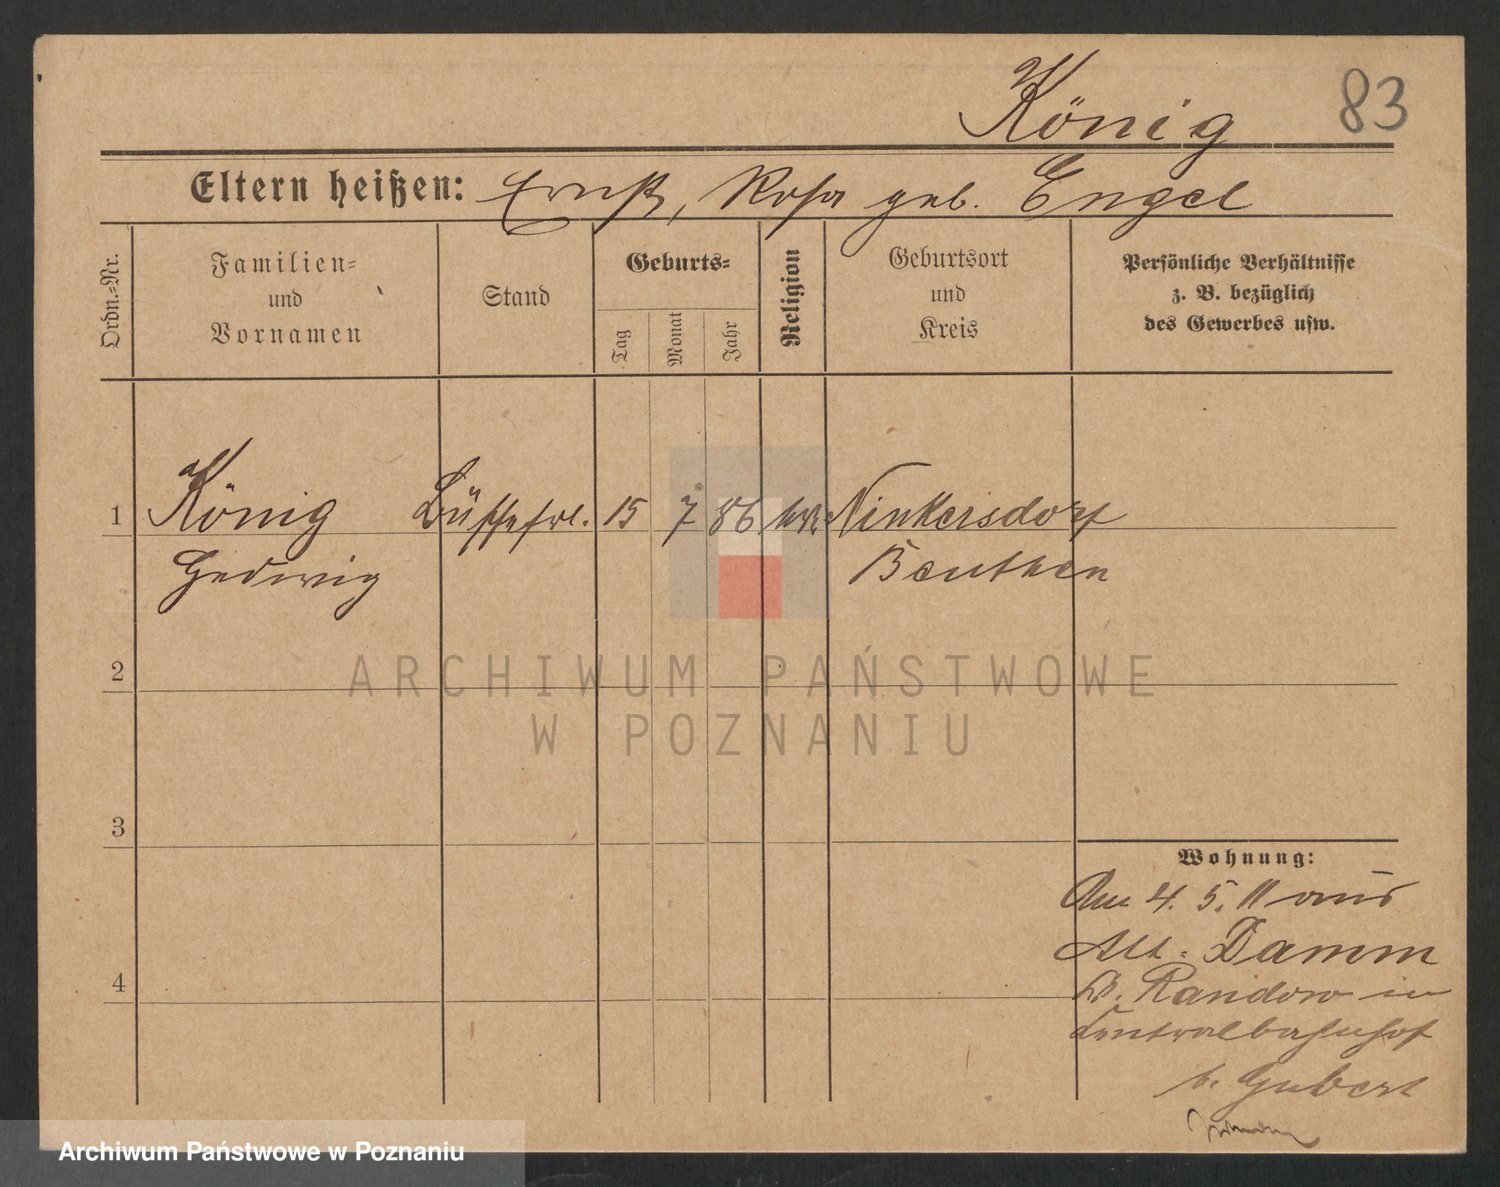 König 83
Eltern heißen: Ernst, Rosa geb. Engel
Ordn.=Nr.
Familien=
und
Vornamen
Stand
Geburts=
Tag
Monat
Jahr
Religion
Geburtsort
und
Kreis
Persönliche Verhältnisse
z. B. bezüglich
des Gewerbes usw.
1 König Büffetfrl. 15 7 86 kth Ninkersdorf
Hedwig Beuthen
2
ARCHIWUM PAŃSTWOWE
W POZNANIU
3
Wohnung:
Am 4. 5. 11 aus
Alt-Damm
Kr. Randow in
Centralbahnhof
b. Gubert
4
Archiwum Państwowe w Poznaniu